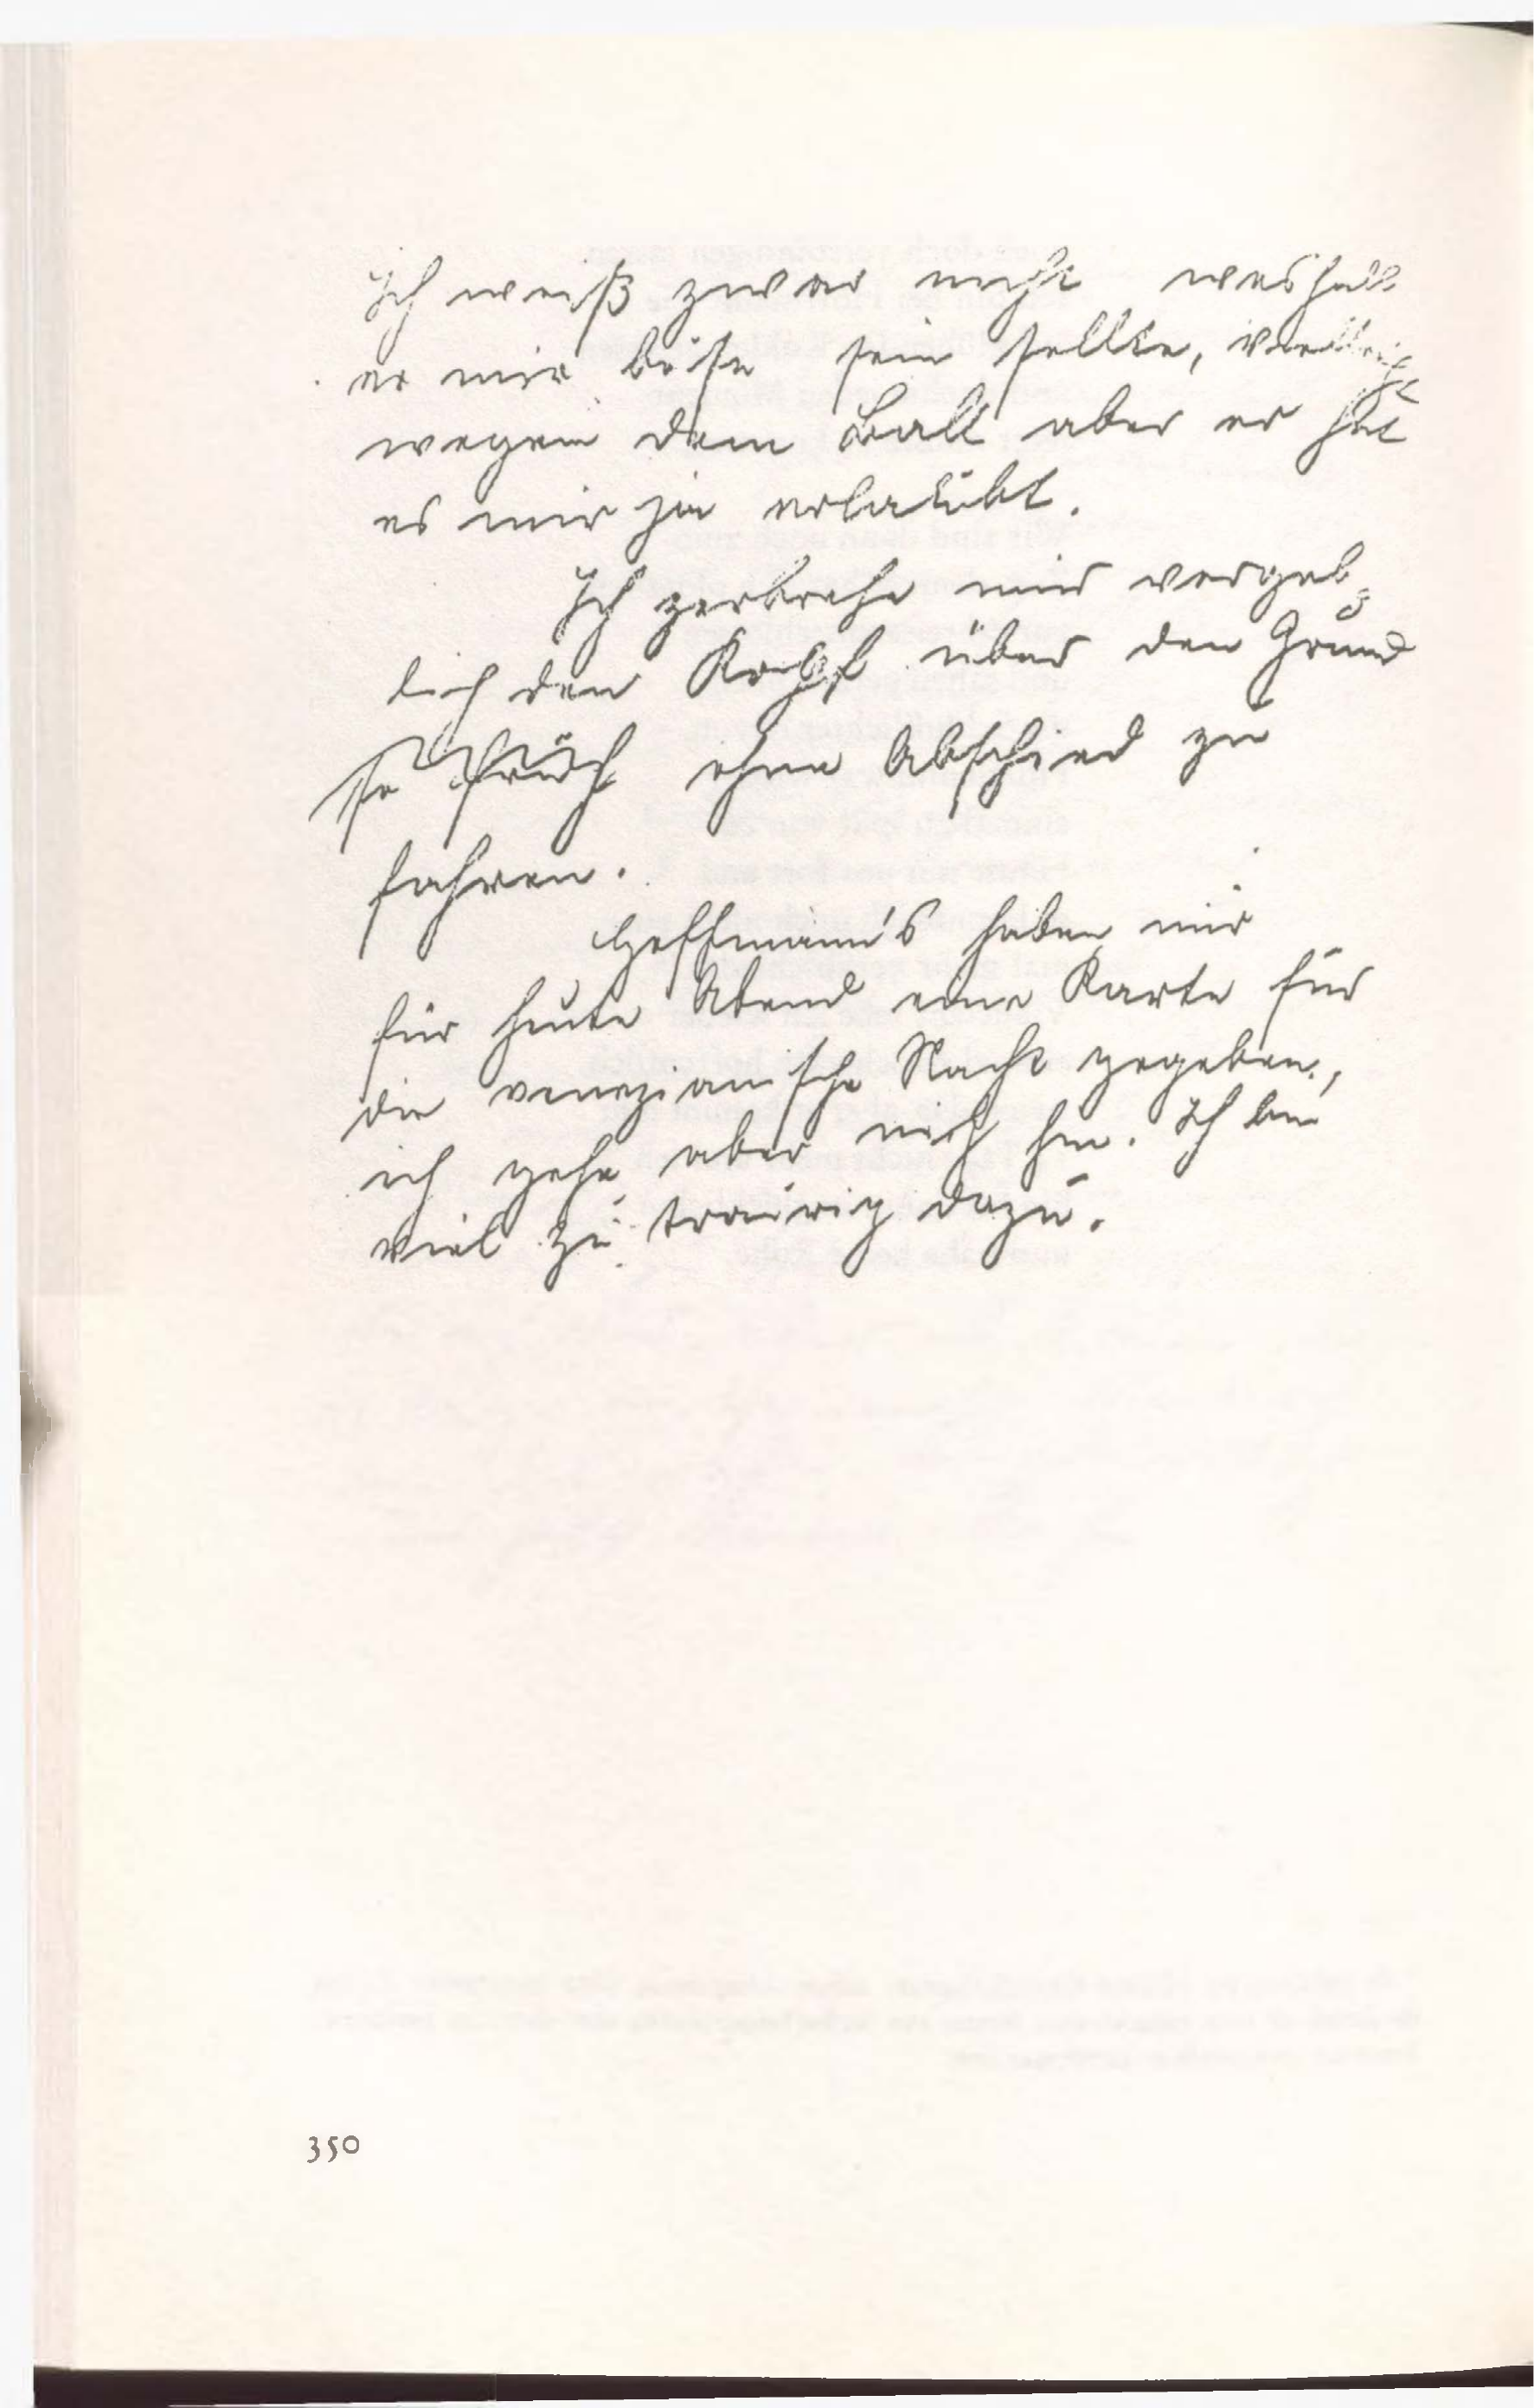 Ich weiß zwar nicht weshalb
er mir böse sein sollte, vielleicht
wegen dem Ball aber er hat
es mir ja erlaubt.
Ich zerbreche mir vergeb-
lich den Kopf über den Grund
so früh ohne Abschied zu
fahren.
Hoffmann's haben mir
für heute Abend eine Karte für
die venezianische Nacht gegeben,
ich gehe aber nich hin. Ich bin
viel zu traurig dazu.
350